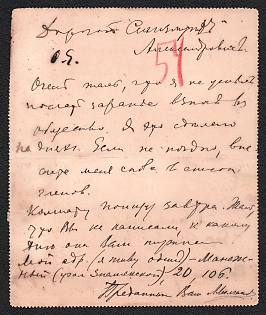 Дорогой Сигизмунд
Александрович
51
Очень жаль, что я не успел
послать заранее взнос в
общество. Я это сделаю
на днях. Если не поздно, вне-
сите меня снова в список
членов.
Комнату поищу завтра. Жаль,
что Вы не написали, к какому
дню она Вам нужна
Мой адр. (я живу один) – Манеж-
ный (угол Знаменской), 20, 106.
Преданный Вам